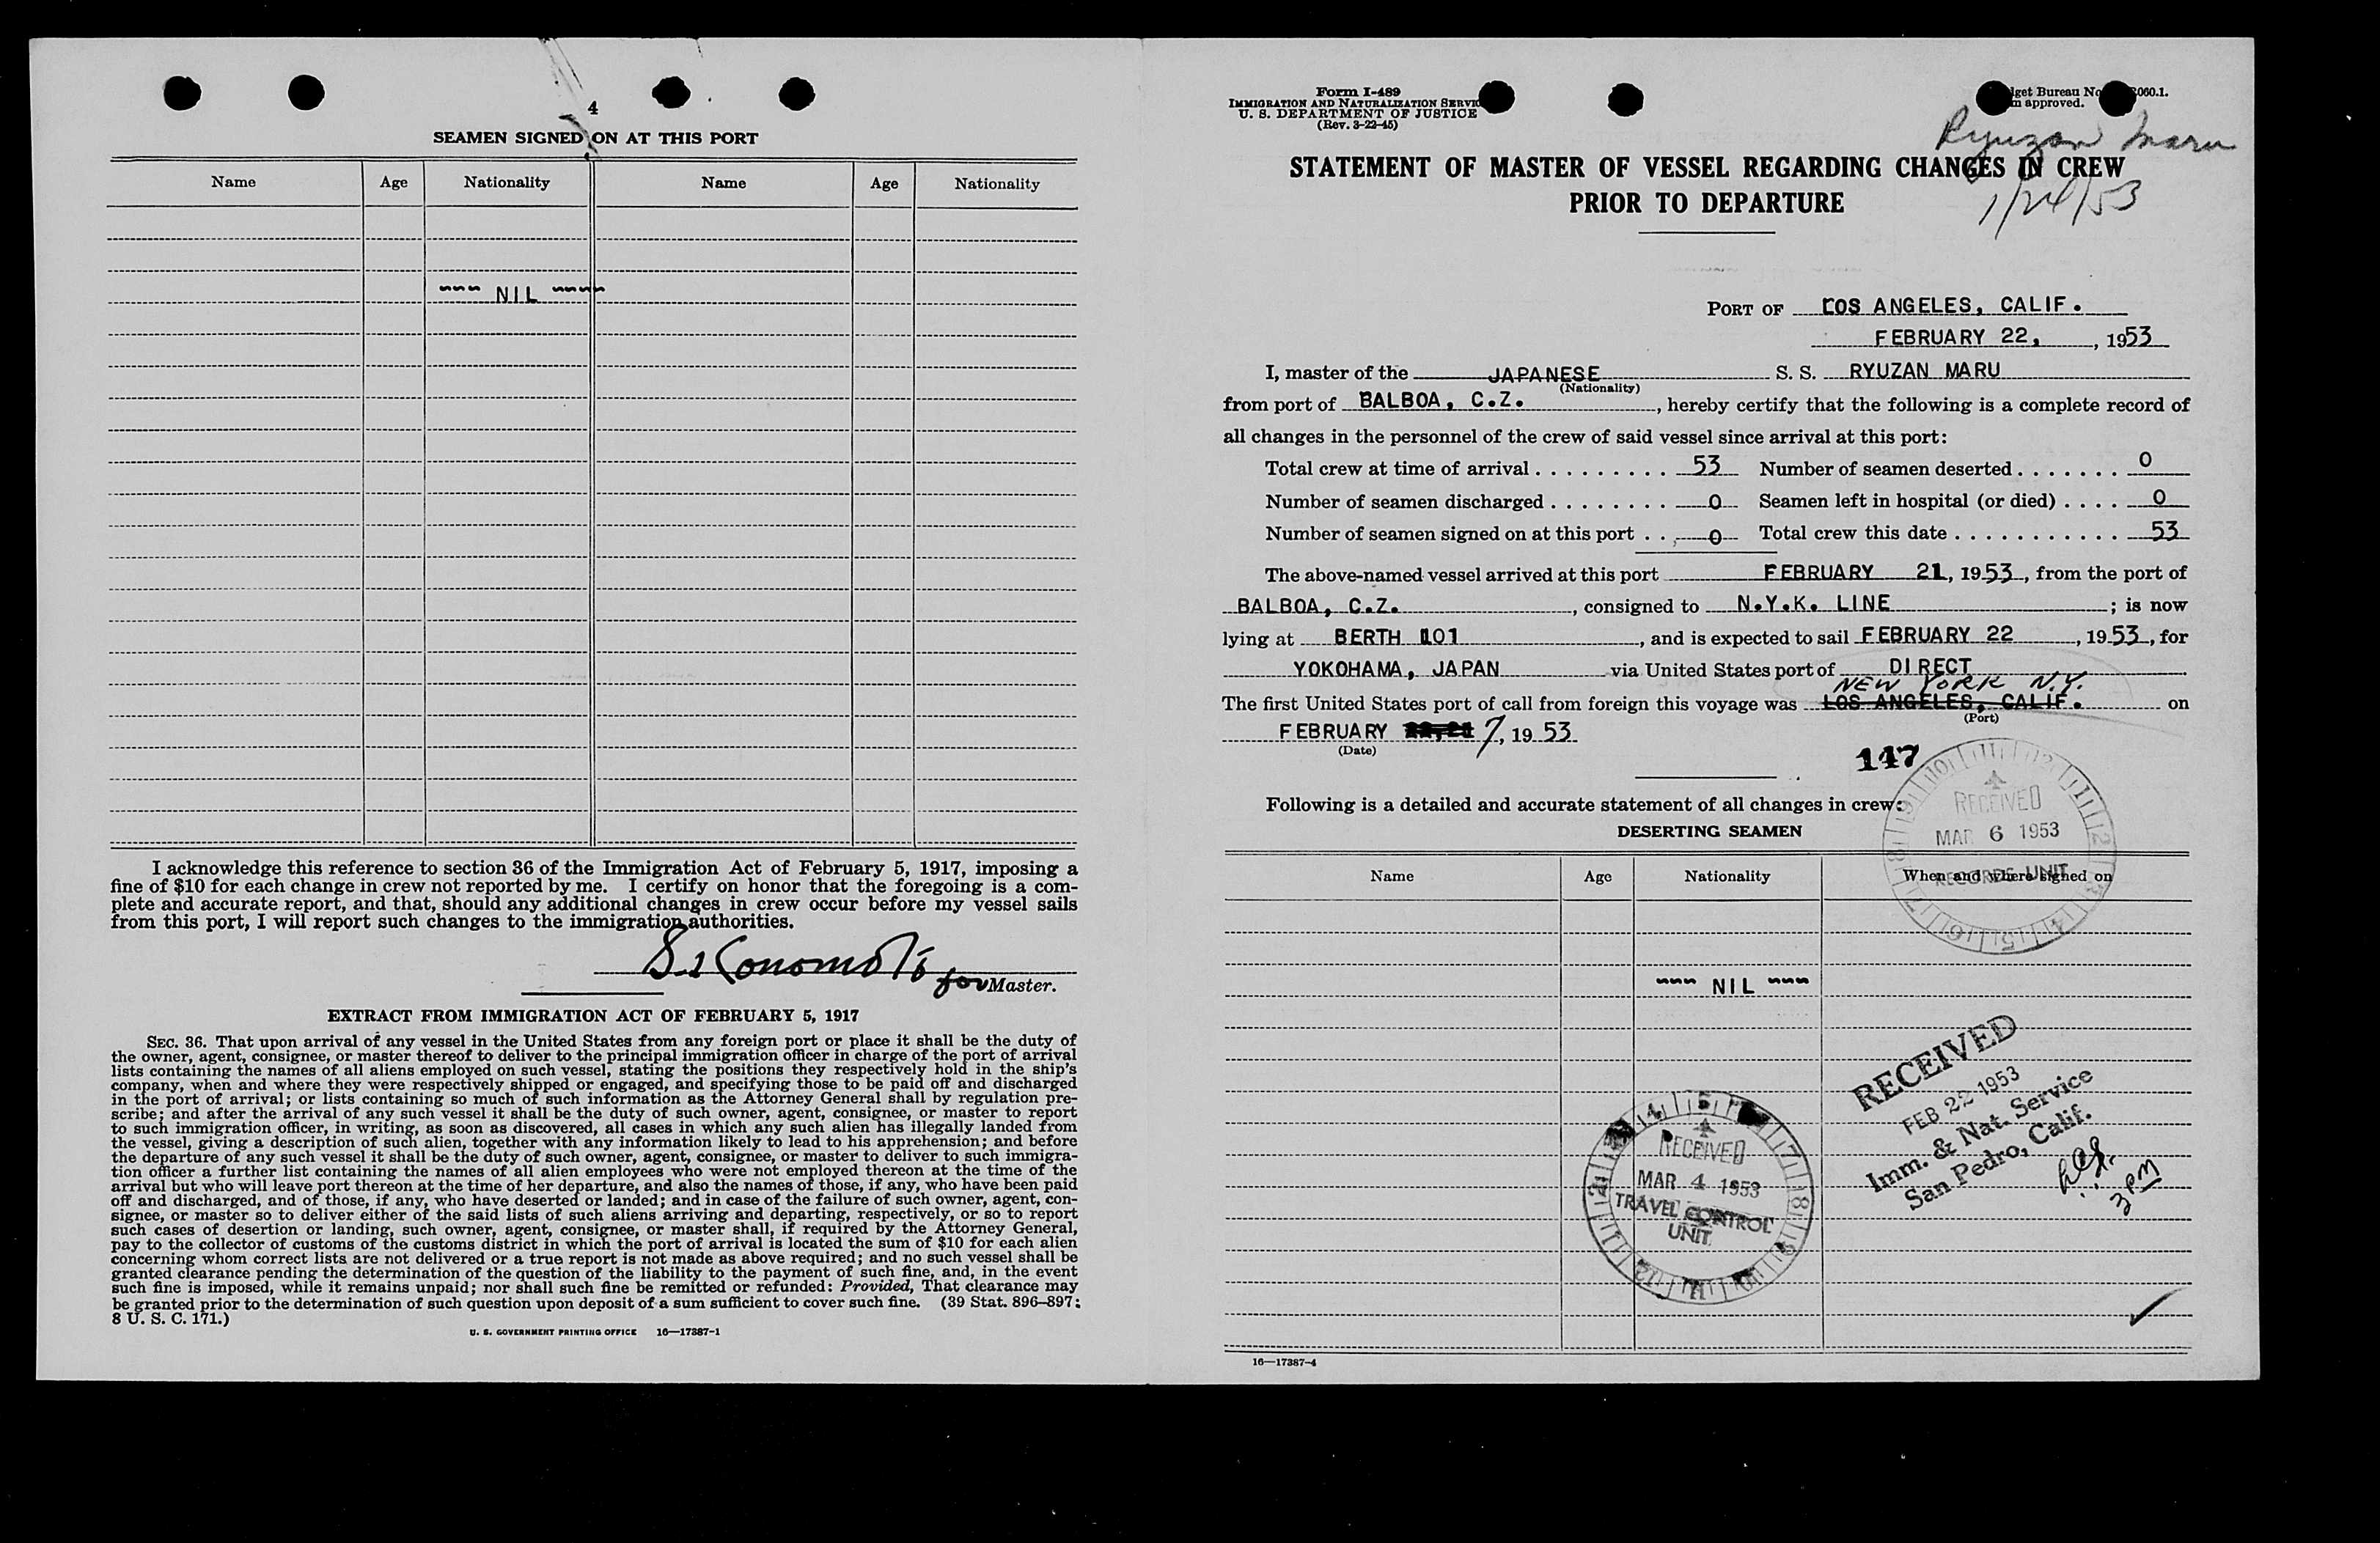 4
SEAMEN SIGNED ON AT THIS PORT
Name Age Nationality Name Age Nationality
NIL
I acknowledge this reference to section 36 of the Immigration Act of February 5, 1917, imposing a
fine of $10 for each change in crew not reported by me. I certify on honor that the foregoing is a com-
plete and accurate report, and that, should any additional changes in crew occur before my vessel sails
from this port, I will report such changes to the immigration authorities.
for Master.
EXTRACT FROM IMMIGRATION ACT OF FEBRUARY 5, 1917
SEC. 36. That upon arrival of any vessel in the United States from any foreign port or place it shall be the duty of
the owner, agent, consignee, or master thereof to deliver to the principal immigration officer in charge of the port of arrival
lists containing the names of all aliens employed on such vessel, stating the positions they respectively hold in the ship's
company, when and where they were respectively shipped or engaged, and specifying those to be paid off and discharged
in the port of arrival; or lists containing so much of such information as the Attorney General shall by regulation pre-
scribe; and after the arrival of any such vessel it shall be the duty of such owner, agent, consignee, or master to report
to such immigration officer, in writing, as soon as discovered, all cases in which any such alien has illegally landed from
the vessel, giving a description of such alien, together with any information likely to lead to his apprehension; and before
the departure of any such vessel it shall be the duty of such owner, agent, consignee, or master to deliver to such immigra-
tion officer a further list containing the names of all alien employees who were not employed thereon at the time of the
arrival but who will leave port thereon at the time of her departure, and also the names of those, if any, who have been paid
off and discharged, and of those, if any, who have deserted or landed; and in case of the failure of such owner, agent, con-
signee, or master so to deliver either of the said lists of such aliens arriving and departing, respectively, or so to report
such cases of desertion or landing, such owner, agent, consignee, or master shall, if required by the Attorney General,
pay to the collector of customs of the customs district in which the port of arrival is located the sum of $10 for each alien
concerning whom correct lists are not delivered or a true report is not made as above required; and no such vessel shall be
granted clearance pending the determination of the question of the liability to the payment of such fine, and, in the event
such fine is imposed, while it remains unpaid; nor shall such fine be remitted or refunded: Provided, That clearance may
be granted prior to the determination of such question upon deposit of a sum sufficient to cover such fine. (39 Stat. 896–897;
8 U. S. C. 171.)
U. S. GOVERNMENT PRINTING OFFICE 16—17387-1
Form I-489
IMMIGRATION AND NATURALIZATION SERVIC
U. S. DEPARTMENT OF JUSTICE
(Rev. 3-22-45)
get Bureau No 060.1.
approved.
Ryuzan Maru
1/24/53
STATEMENT OF MASTER OF VESSEL REGARDING CHANGES IN CREW
PRIOR TO DEPARTURE
PORT OF LOS ANGELES, CALIF.
FEBRUARY 22, , 1953
I, master of the JAPANESE S. S. RYUZAN MARU
(Nationality)
from port of BALBOA, C.Z. , hereby certify that the following is a complete record of
all changes in the personnel of the crew of said vessel since arrival at this port:
Total crew at time of arrival . . . . . . . . . 53 Number of seamen deserted . . . . . . . 0
Number of seamen discharged . . . . . . . . 0 Seamen left in hospital (or died) . . . . 0
Number of seamen signed on at this port . . 0 Total crew this date . . . . . . . . . . . 53
The above-named vessel arrived at this port FEBRUARY 21, 1953, from the port of
BALBOA, C.Z. , consigned to N.Y.K. LINE ; is now
lying at BERTH 101 , and is expected to sail FEBRUARY 22 , 1953, for
YOKOHAMA, JAPAN via United States port of DIRECT
NEW YORK N.Y.
The first United States port of call from foreign this voyage was LOS ANGELES, CALIF. on
(Port)
FEBRUARY 7, 1953
(Date)
147
Following is a detailed and accurate statement of all changes in crew:
DESERTING SEAMEN
RECEIVED
MAR 6 1953
RECORDS UNIT
Name Age Nationality When and where signed on
NIL
RECEIVED
FEB 22 1953
Imm. & Nat. Service
San Pedro, Calif.
3 PM
RECEIVED
MAR 4 1953
TRAVEL CONTROL
UNIT
16—17387-4